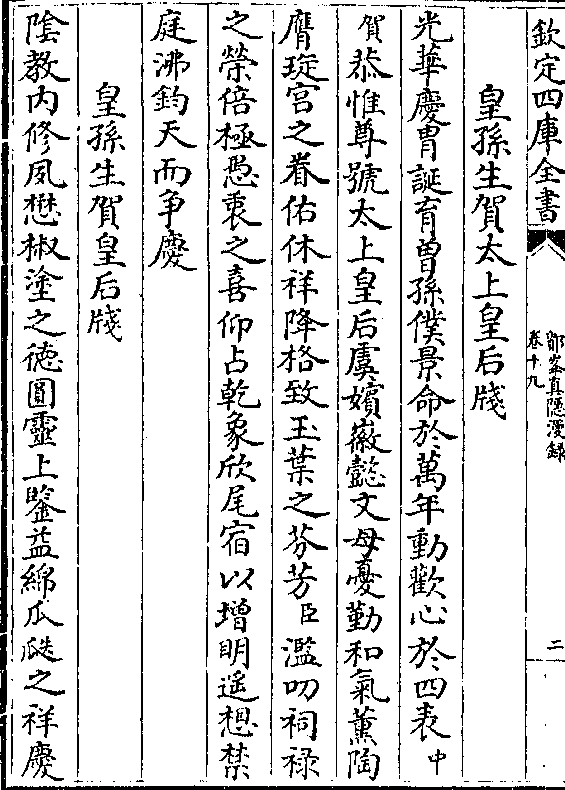 欽定四庫全書
鄮峯真隠漫録
卷十九
二
皇孫生賀太上皇后牋
光華慶胄誕育曽孫僕景命於萬年動歡心於四表中
賀恭惟尊號太上皇后虞嬪徽懿文母憂勤和氣薰陶
膺琁宫之眷佑休祥降格致玉葉之芬芳臣濫叨祠禄
之榮倍極愚衷之喜仰占乾象欣尾宿以增明遥想禁
庭沸鈞天而争慶
皇孫生賀皇后牋
隂教内修夙懋椒塗之德圓靈上鑒益綿瓜瓞之祥慶